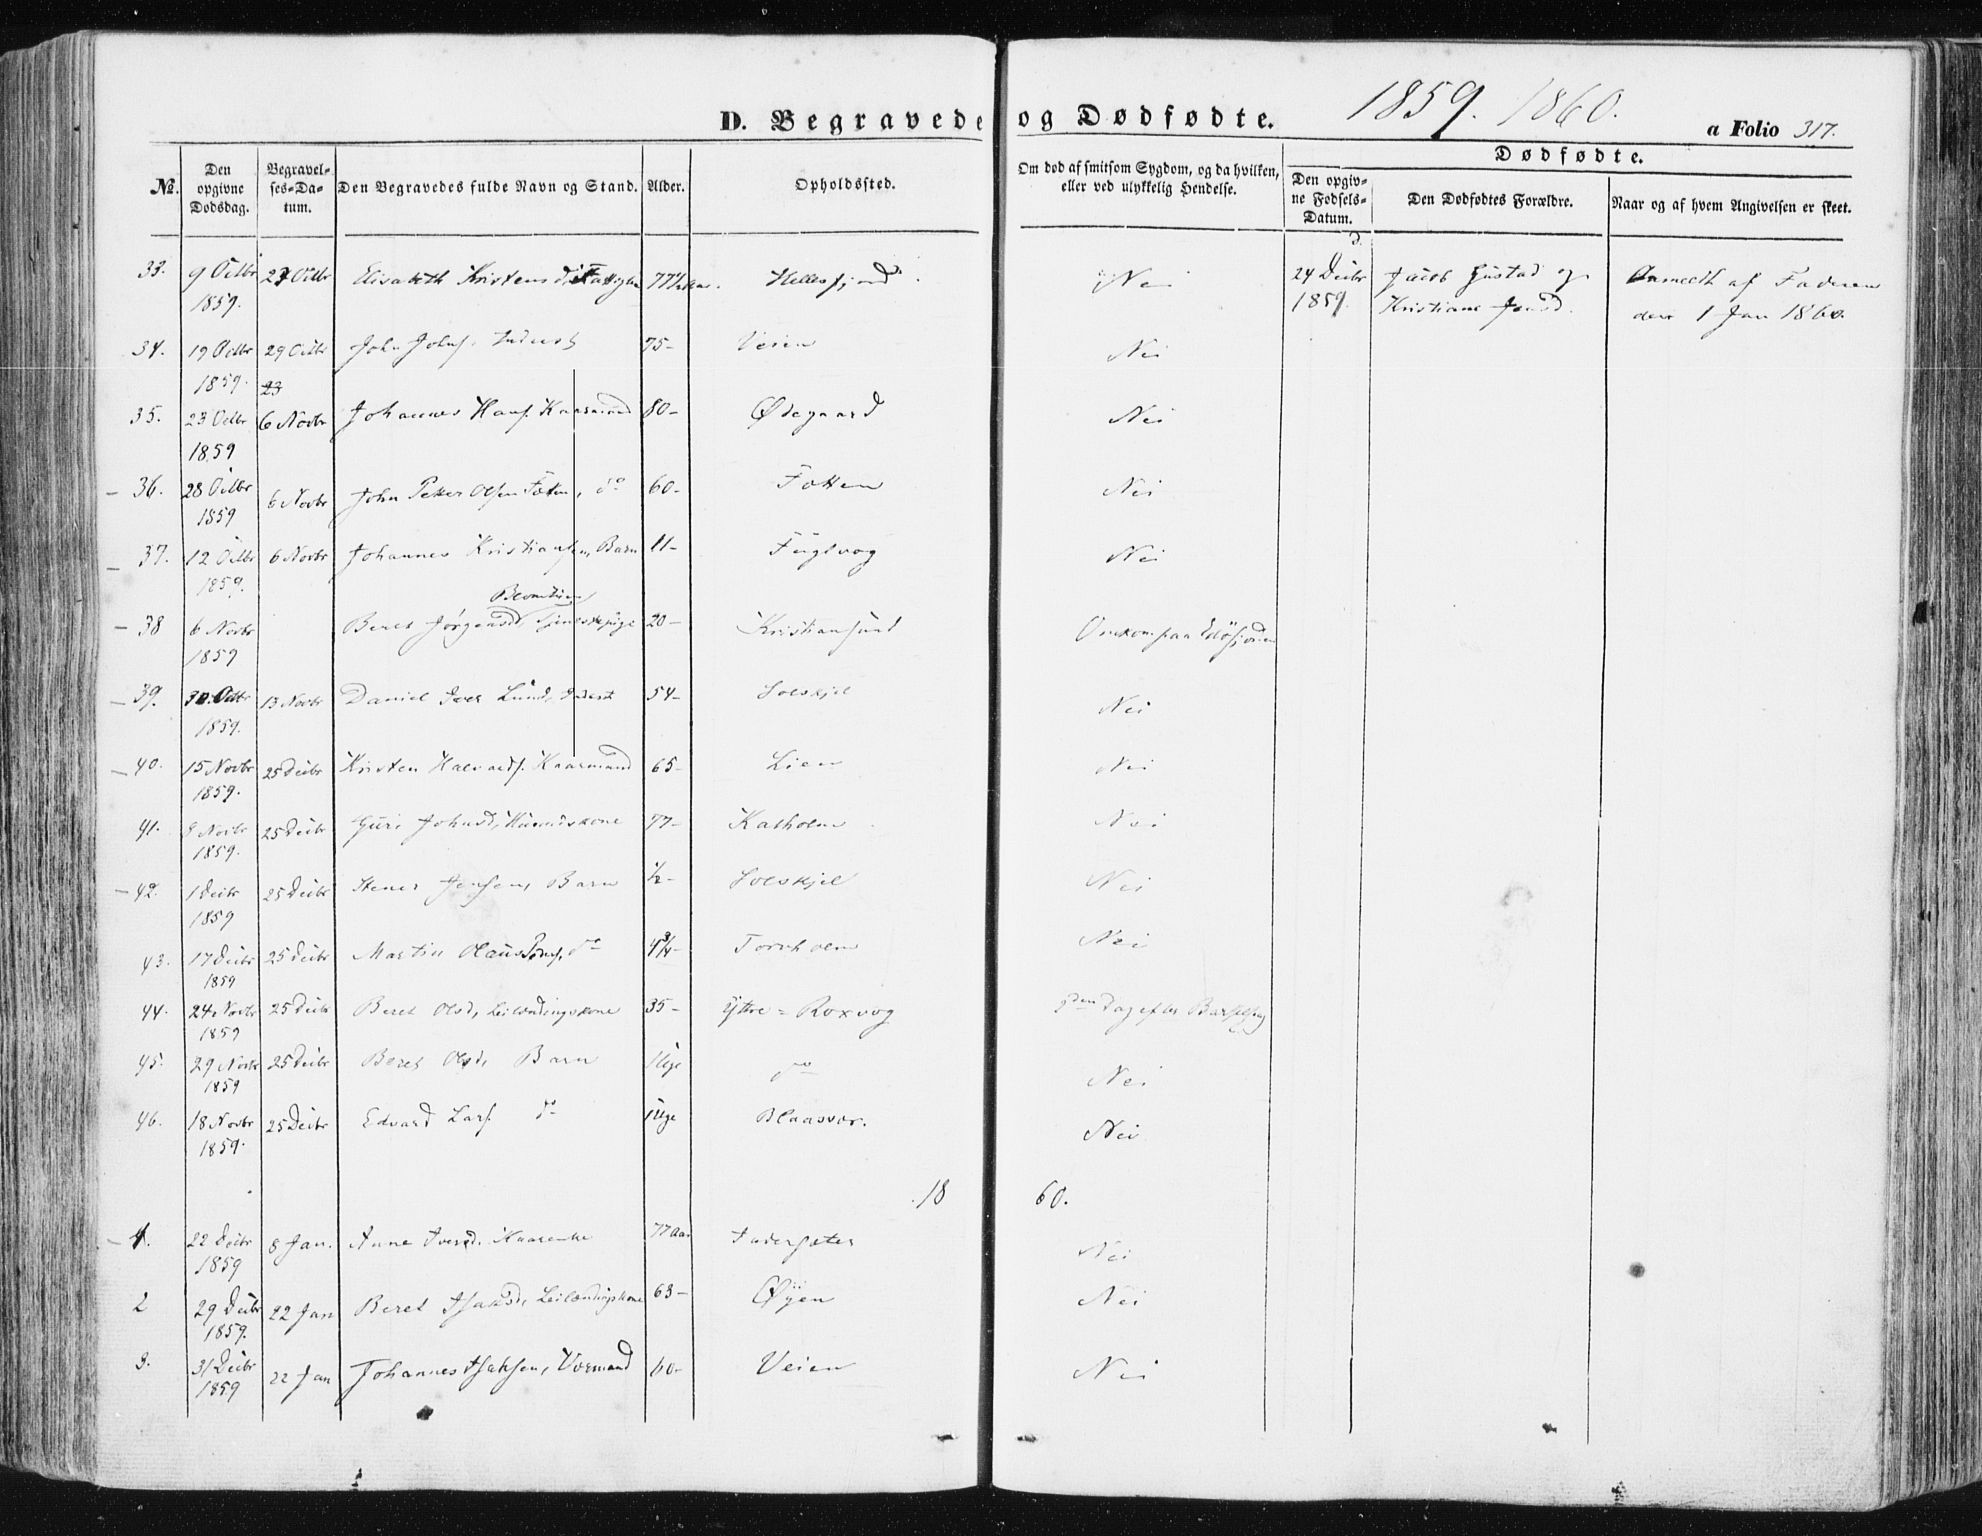 D. Begravede og Dødfødte. 1859. 1860.
a Folio 317.
No. Den opgivne Dødsdag. Begravelses-Datum. Den Begravedes fulde Navn og Stand. Alder. Opholdssted. Om død af smitsom Sygdom, og da hvilken, eller ved ulykkelig Hendelse.
Dødfødte.
Den opgivne Fødsels-Datum. Den Dødfødtes Forældre. Naar og af hvem Angivelsen er skeet.
33. 9 Octbr 1859. 23 Octbr Elisabeth Kristensd. 77½ Aar. Hellesfjord Nei
24 Decbr 1859. Jacob Gustad og Kristiane Jensd. Anmeldt af Faderen den 1 Jan 1860.
34. 19 Octbr 1859. 29 Octbr John Johns. Inderst 75- Veien Nei
23
35. 23 Octbr 1859 6 Novbr Johannes Hans. Kaarmand 80- Ødegaard Nei
36. 28 Octbr 1859 6 Novbr John Petter Olsen Fætten, do 60- Fætten Nei
37. 12 Octbr 1859. 6 Novbr Johannes Kristiansen, Barn 11- Fuglvog Nei
38 6 Novbr 1859 Beret Jørgensd. Tjenestepige 20- Kristiansund Omkom paa Edøfjorden
39. 30. Octbr 1859. 13 Novbr Daniel Ivers Lund, Inderst 54- Solskjel Nei
40. 15 Novbr 1859. 25 Decbr Kristen Halvards. Kaarmand 65- Lien Nei
41. 8 Novbr 1859. 25 Decbr Guri Johnsd, Huusmdskone 77- Kalholm Nei
42. 1 Decbr 1859 25 Decbr Stener Jensen, Barn ½- Solskjel Nei
43. 17 Decbr 1859 25 Decbr Martin Olaus do 4¾- Tornholm Nei
44. 24 Novbr 1859 25 Decbr Beret Olsd, Leilændingskone 35- Yttre = Roxvog Dag efter Barselseng
45. 29 Novbr 1859 25 Decbr Beret Olsd, Barn 1 Uge do Nei
46. 18 Novbr 1859. 25 Decbr Edvard Lars. do 1 Uge Blaasvær. Nei
18 60.
1. 22 Decbr 1859 8 Jan. Anne Iversd. Kaarenke 77 Aar Indersæter Nei
2 29 Decbr 1859. 22 Jan Beret Isaksd, Leilændingskone 63- Øyen Nei
3. 31 Decbr 1859 22 Jan Johannes Isaksen, Vormand 60- Veien Nei